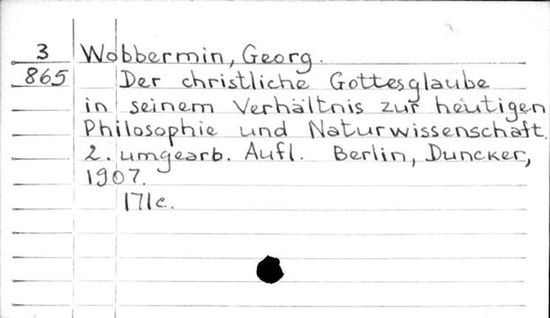 3 Wobbermin, Georg.
865 Der christliche Gottesglaube
in seinem Verhältnis zur heutigen
Philosophie und Naturwissenschaft.
2. umgearb. Aufl. Berlin, Duncker,
1907.
171c.